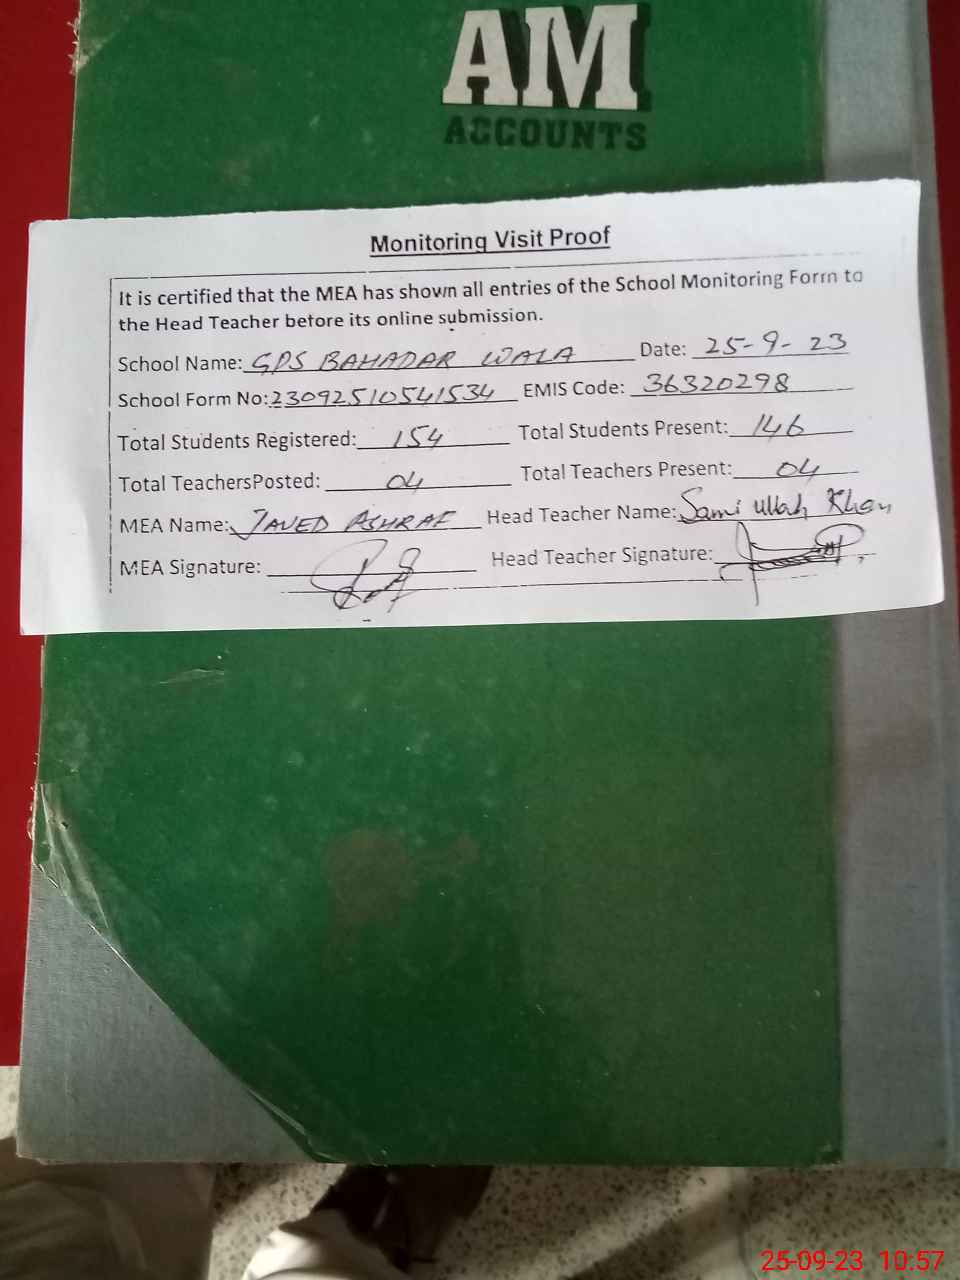 AM
ACCOUNTS
Monitoring Visit Proof
It is certified that the MEA has shown all entries of the School Monitoring Form to
the Head Teacher before its online submission.
School Name: GPS BAHADAR WALA Date: 25-9-23
School Form No: 23092510541534 EMIS Code: 36320298
Total Students Registered: 154 Total Students Present: 146
Total TeachersPosted: 04 Total Teachers Present: 04
MEA Name: JAVED ASHRAF Head Teacher Name: Sami ullah Khan
MEA Signature: Head Teacher Signature:
25-09-23 10:57